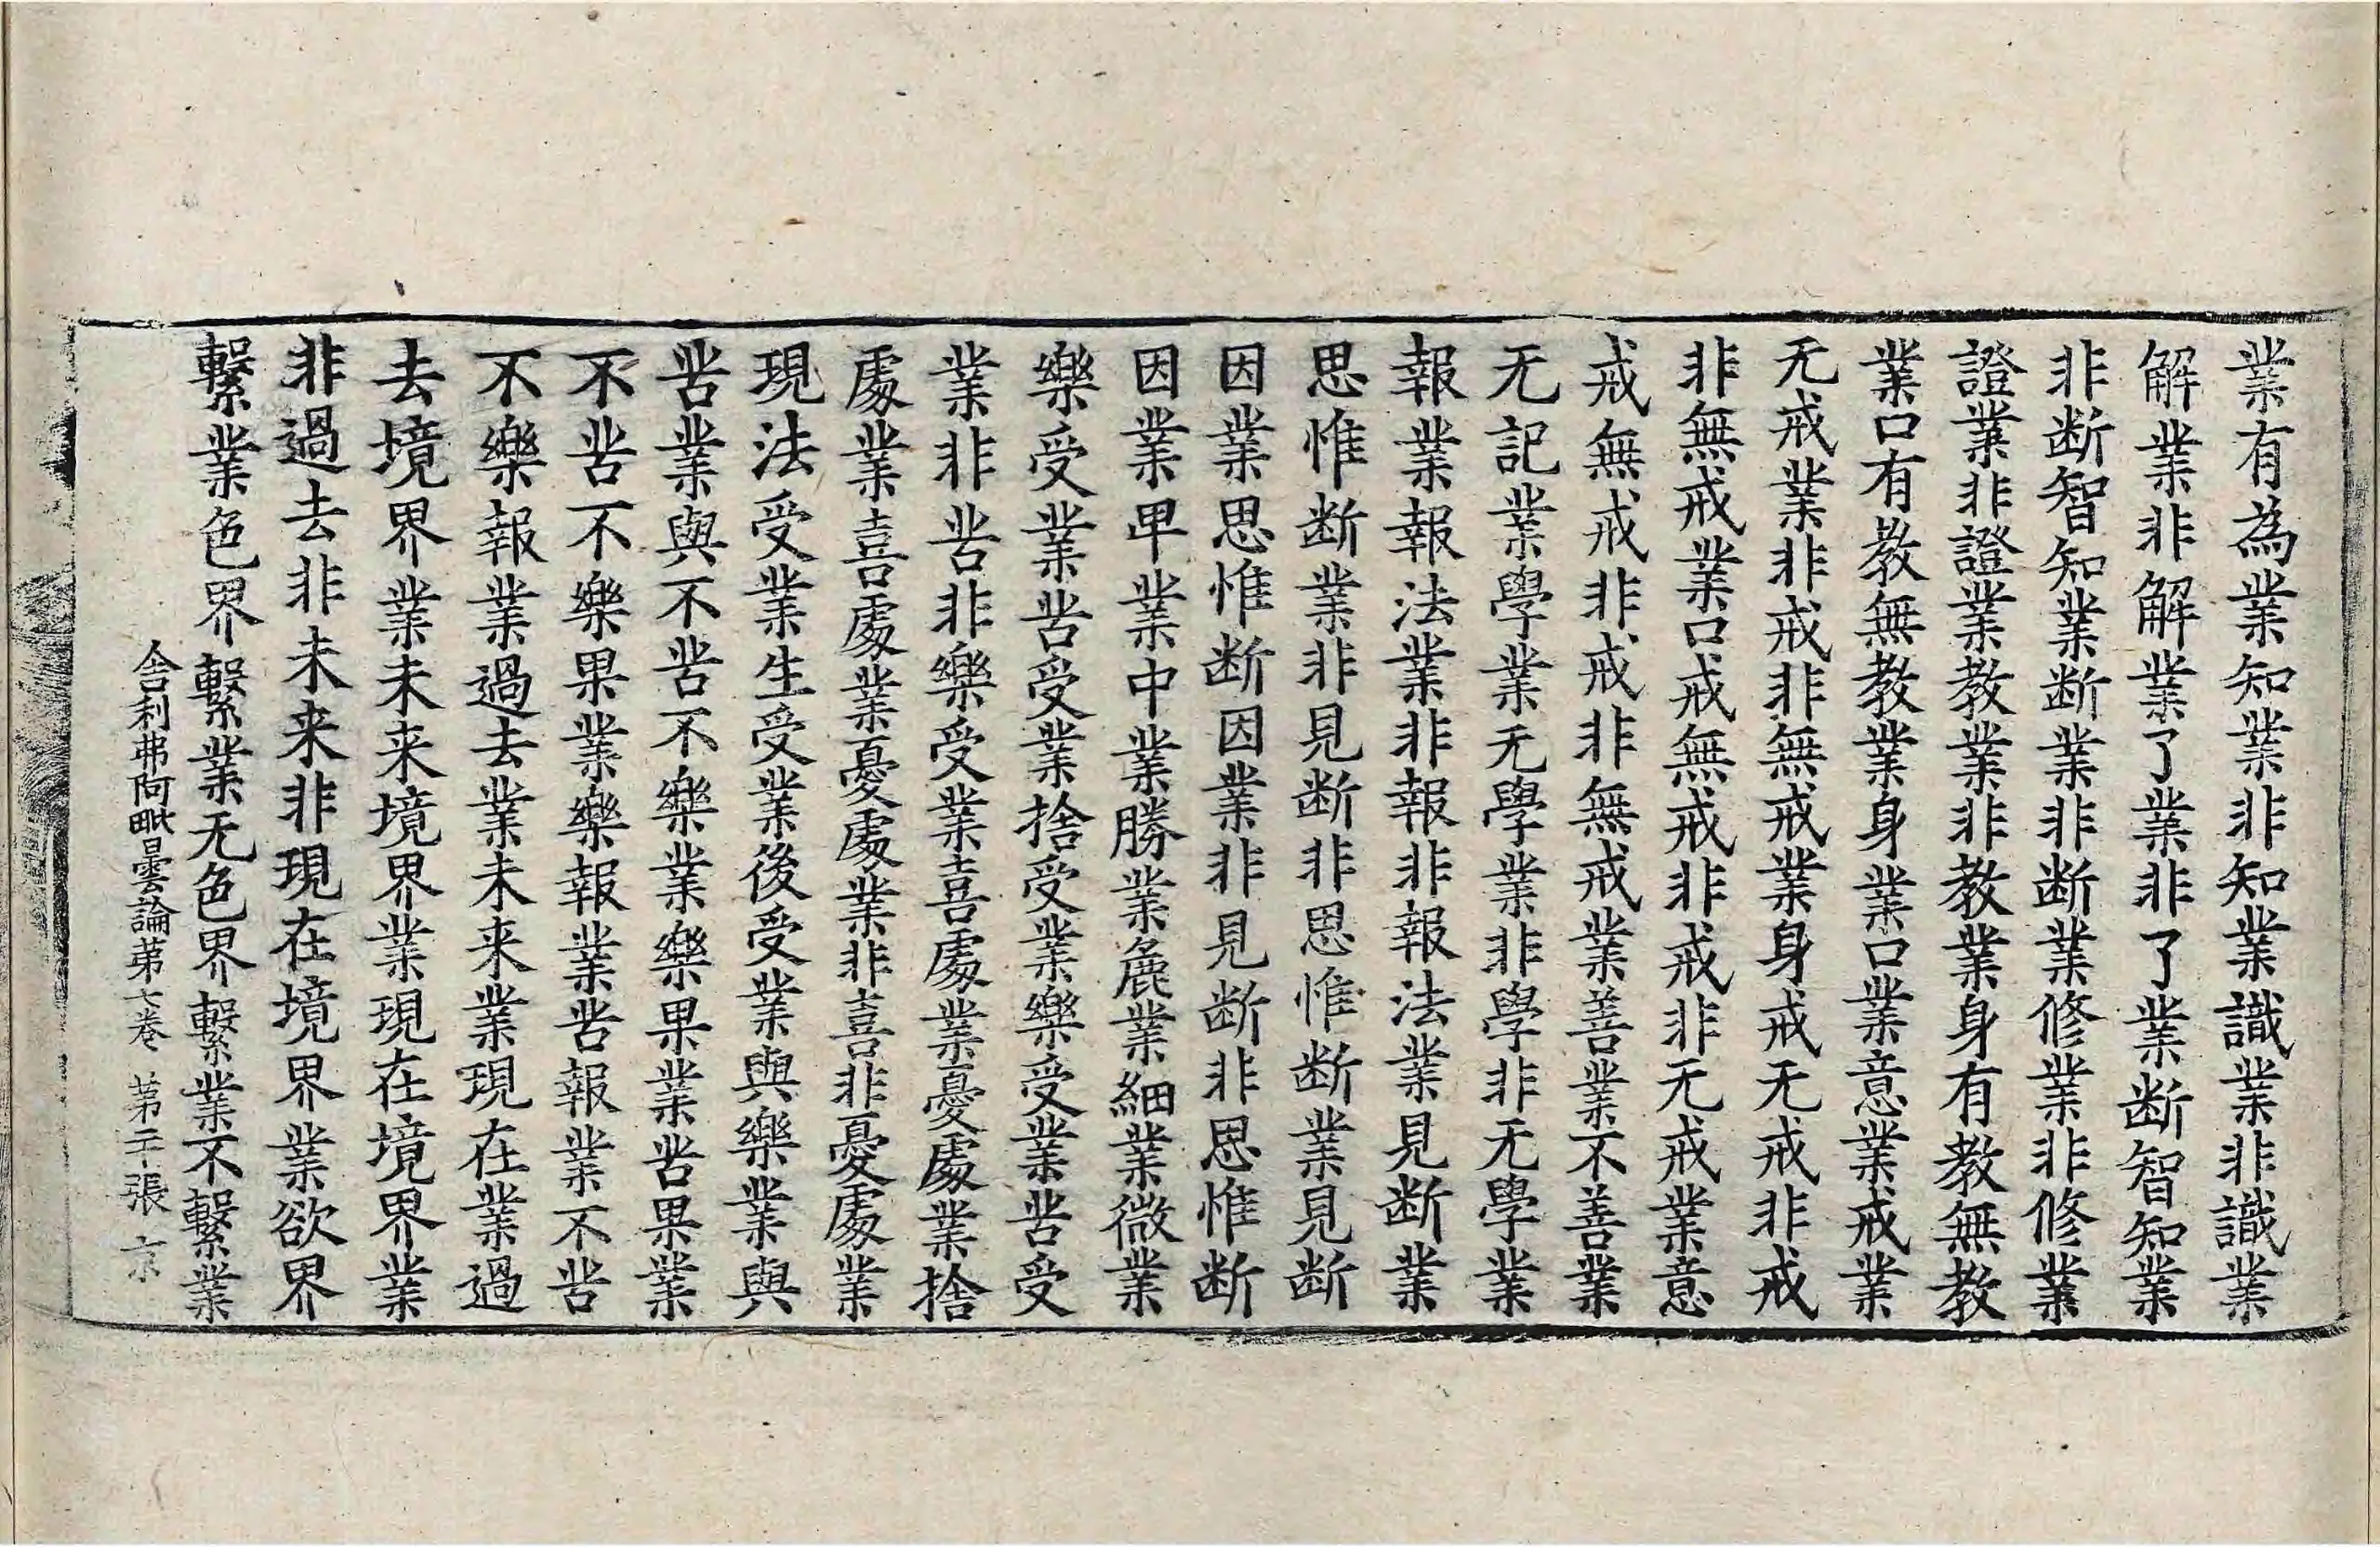 業有為業知業非知業識業非識業
解業非解業了業非了業断智知業
非断智知業断業非断業修業非修業
證業非證業教業非教業身有教無教
業口有教無教業身業口業意業戒業
无戒業非戒非無戒業身戒无戒非戒
非無戒業口戒無戒非戒非无戒業意
戒無戒非戒非無戒業善業不善業
无記業學業无學業非學非无學業
報業報法業非報非報法業見断業
思惟断業非見断非思惟断業見断
因業思惟断因業非見断非思惟断
因業卑業中業勝業麁業細業微業
樂受業苦受業捨受業樂受業苦受
業非苦非樂受業喜處業憂處業捨
處業喜處業憂處業非喜非憂處業
現法受業生受業後受業與樂業與
苦業與不苦不樂業樂果業苦果業
不苦不樂果業樂報業苦報業不苦
不樂報業過去業未来業現在業過
去境界業未来境界業現在境界業
非過去非未来非現在境界業欲界
繫業色界繫業无色界繫業不繫業
舍利弗阿毗曇論苐七卷 苐二十張 京